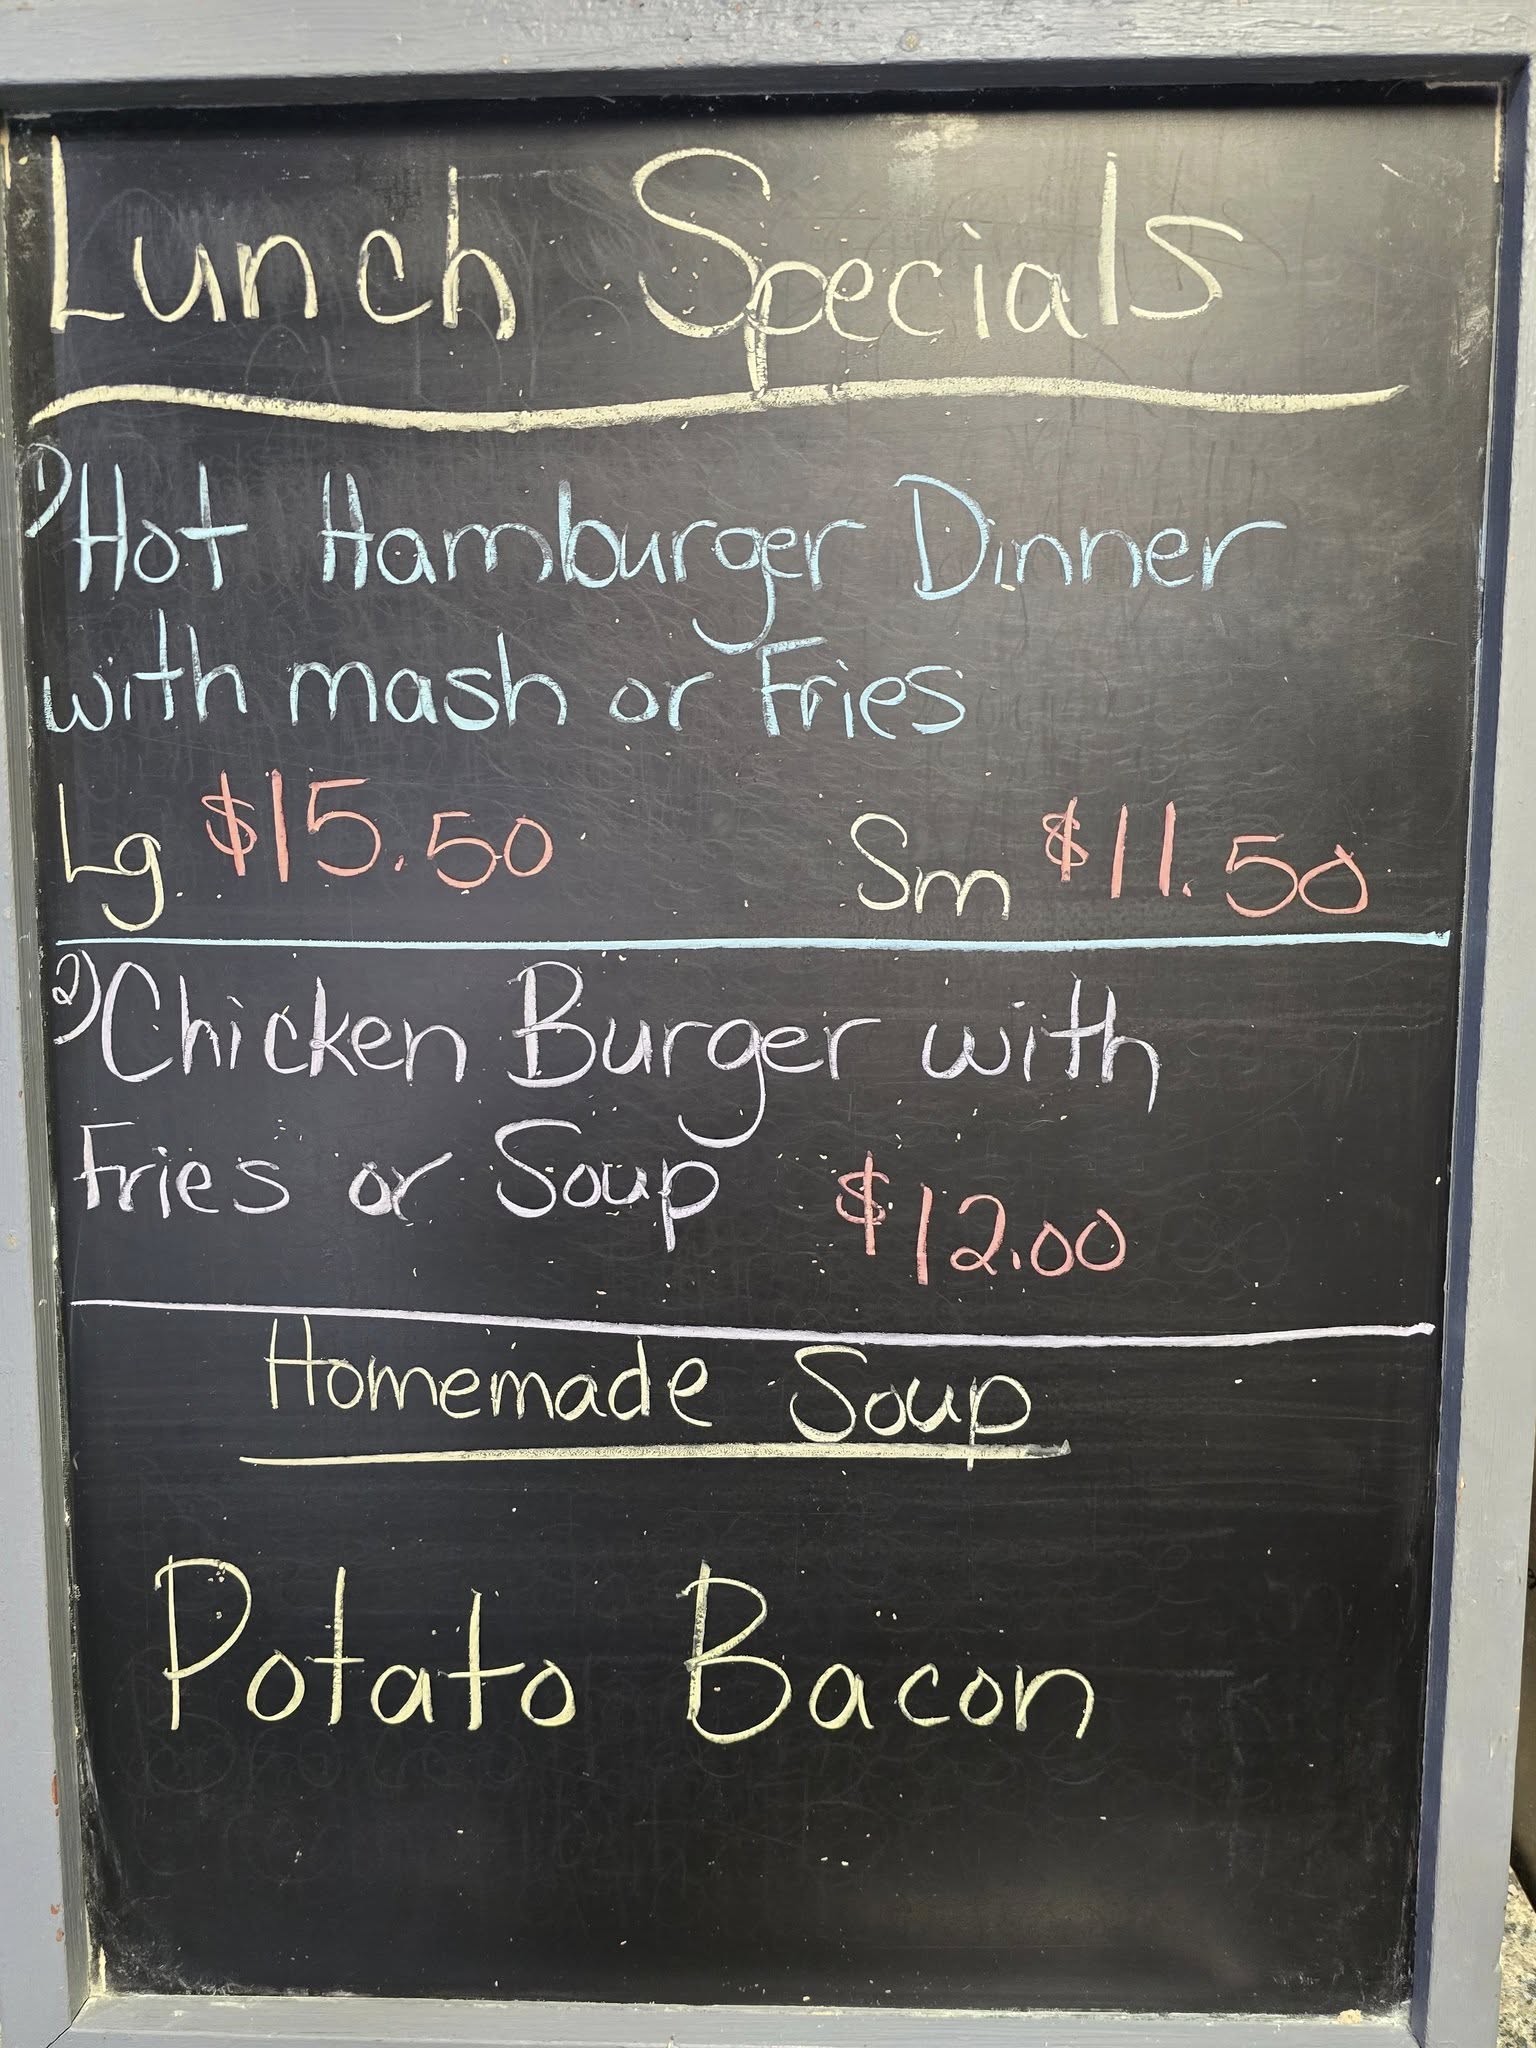 Lunch Specials
1) Hot Hamburger Dinner
with mash or Fries
Lg $15.50 Sm $11.50
2) Chicken Burger with
Fries or Soup $12.00
Homemade Soup
Potato Bacon